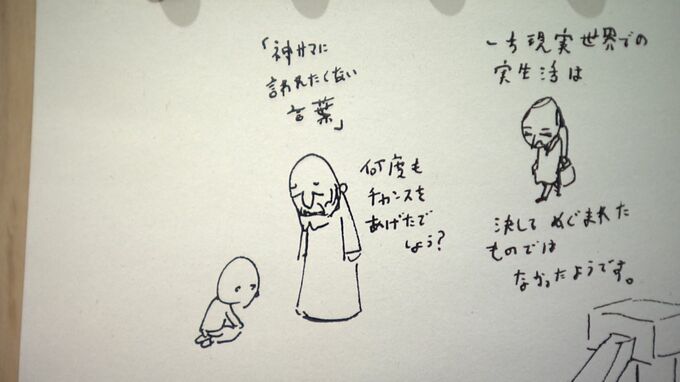 「神サマに
言われたくない
言葉」
何度も
チャンスを
あげたで
しょう?
一方現実世界での
実生活は
決して めぐまれた
ものでは
なかったようです。